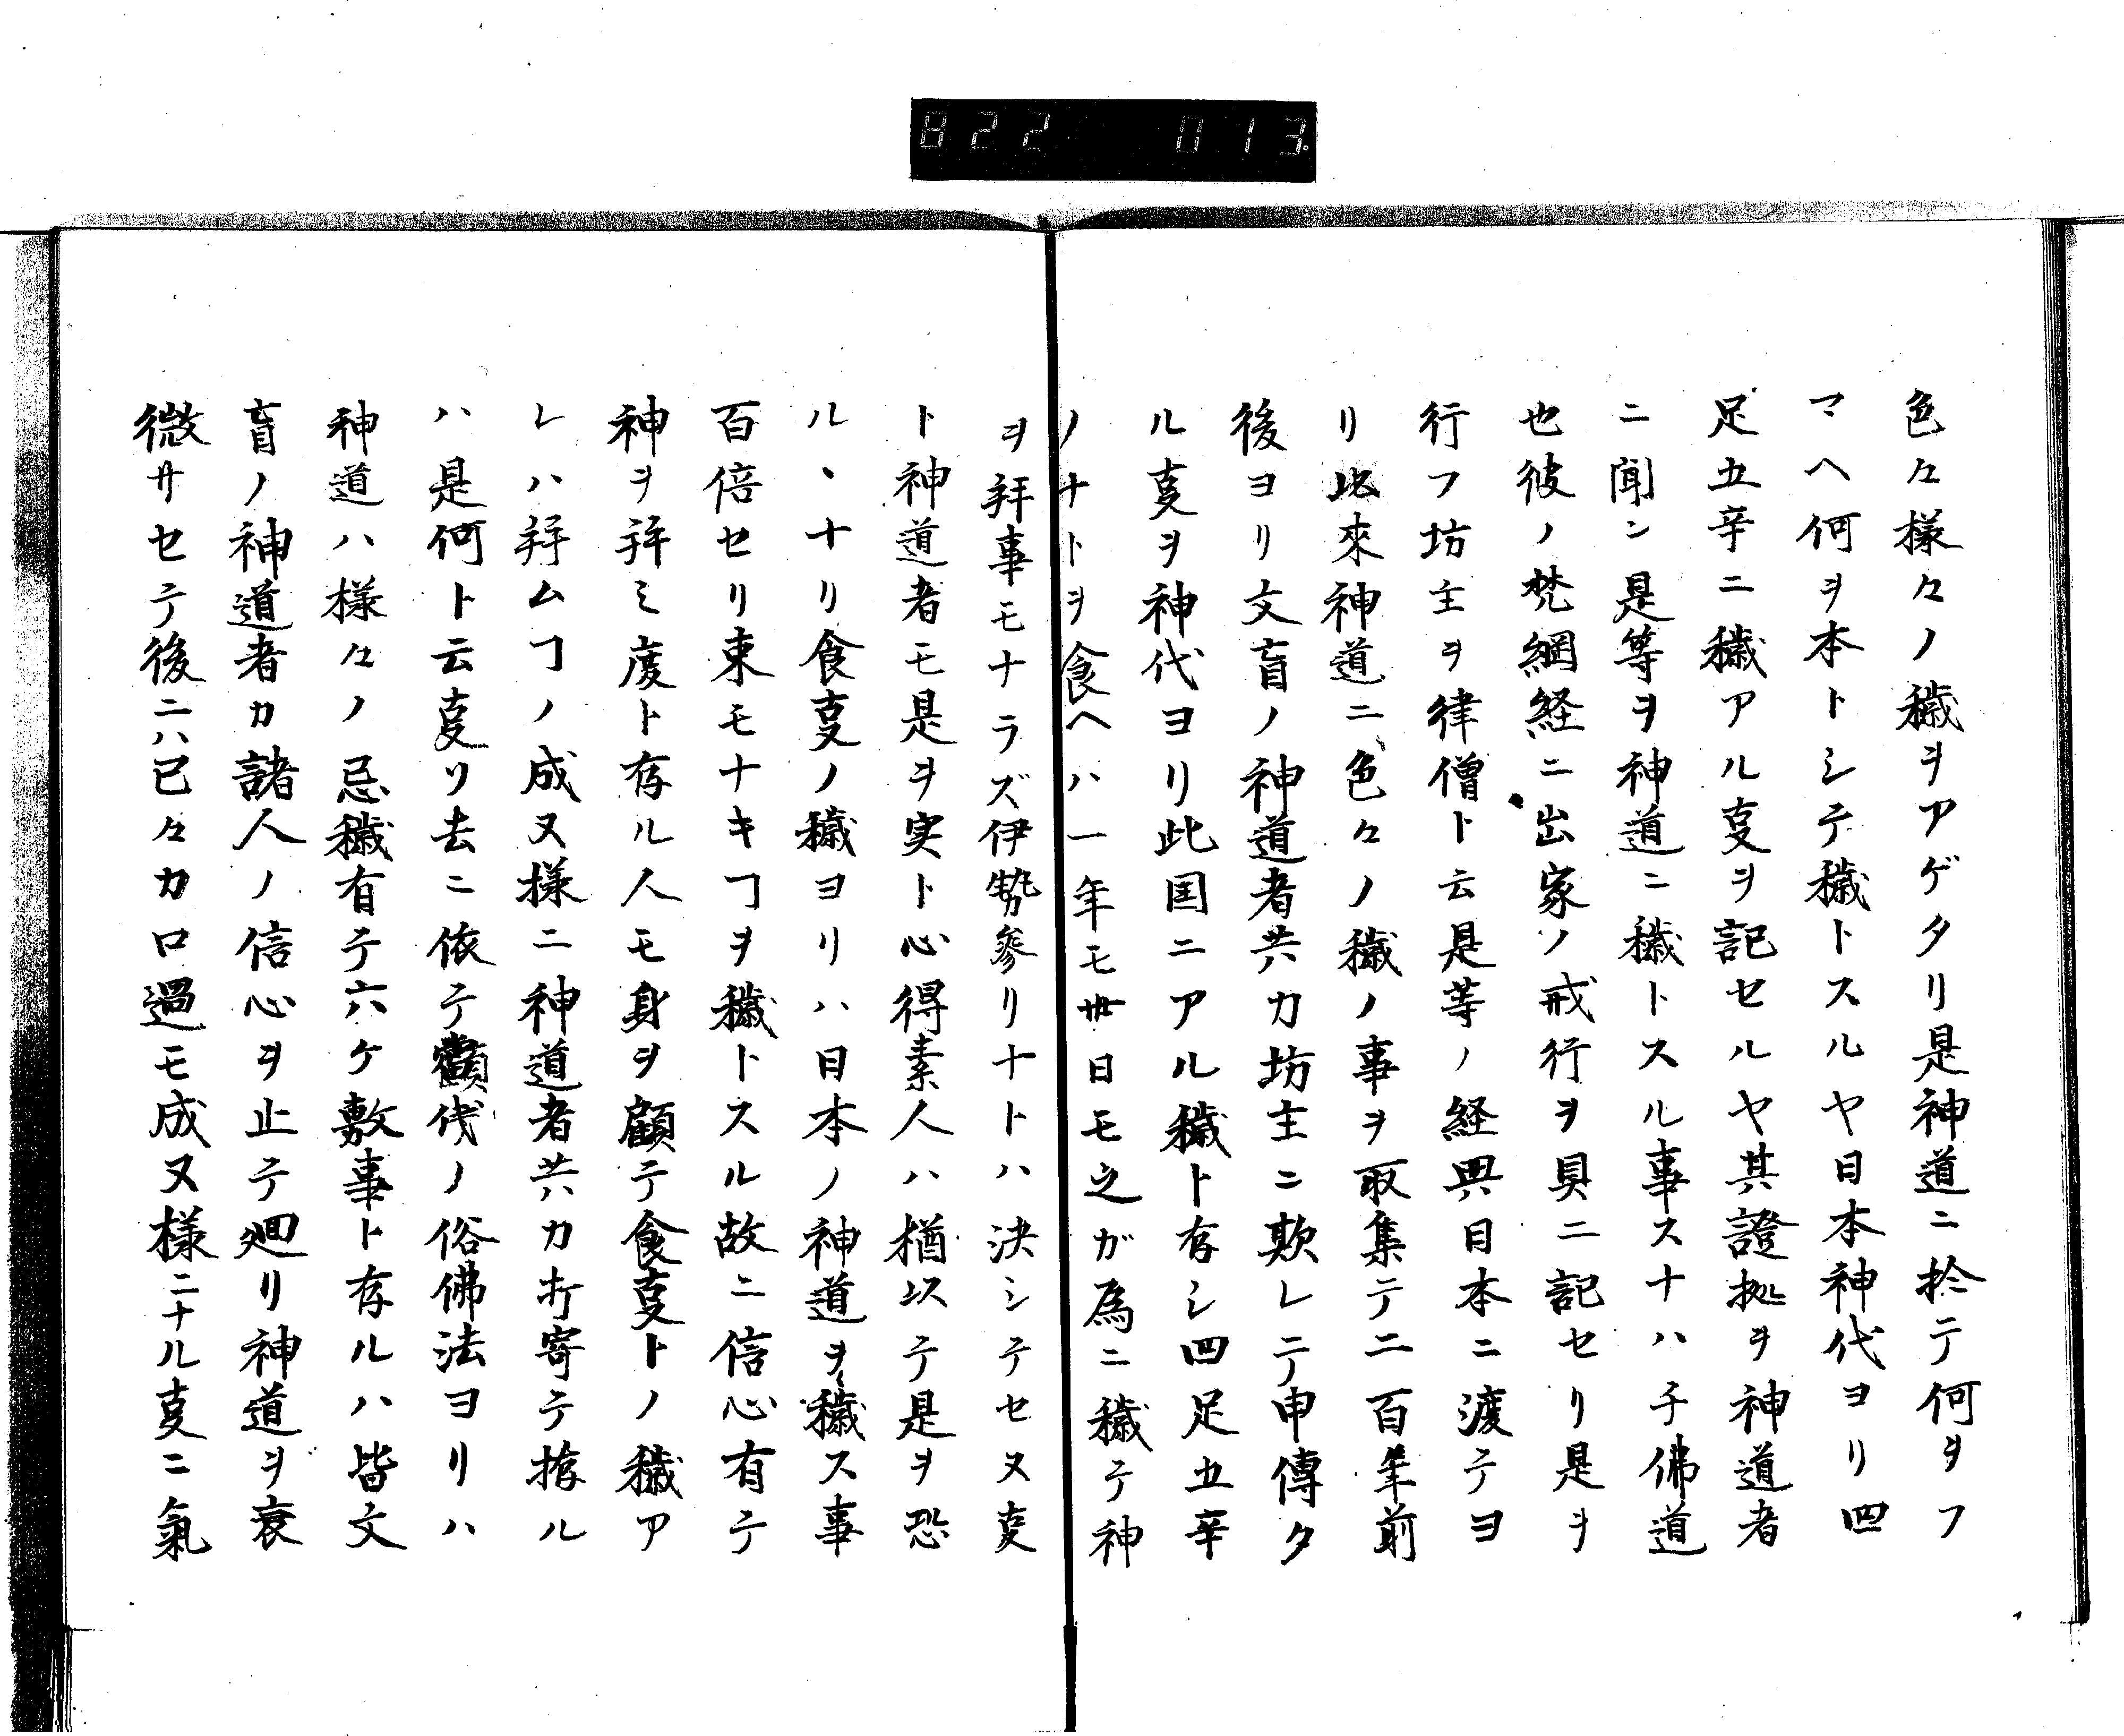 822 013
色々様々ノ穢ヲアゲタリ是神道ニ於テ何ヲフ
マヘ何ヲ本トシテ穢トスルヤ日本神代ヨリ四
足五辛ニ穢アル㕝ヲ記セルヤ其證拠ヲ神道者
ニ聞ン是等ヲ神道ニ穢トスル事スナハチ佛道
也彼ノ梵網経ニ出家ノ戒行ヲ具ニ記セリ是ヲ
行フ坊主ヲ律僧ト云是等ノ経典日本ニ渡テヨ
リ比來神道ニ色々ノ穢ノ事ヲ取集テ二百年前
後ヨリ文盲ノ神道者共カ坊主ニ欺レテ申傳タ
ル㕝ヲ神代ヨリ此国ニアル穢ト存シ四足五辛
ノナトヲ食ヘハ一年モ卅日モ之ガ為ニ穢テ神
ヲ拜事モナラズ伊勢参リナトハ決シテセヌ㕝
ト神道者モ是ヲ実ト心得素人ハ猶以テ是ヲ恐
ルヽナリ食㕝ノ穢ヨリハ日本ノ神道ヲ穢ス事
百倍セリ東モナキヿヲ穢トスル故ニ信心有テ
神ヲ拜ミ度ト存ル人モ身ヲ顧テ食㕝トノ穢ア
レハ拜ムヿノ成ヌ様ニ神道者共カ打寄テ拵ル
ハ是何ト云㕝リ去ニ依テ觀伐ノ俗佛法ヨリハ
神道ハ様々ノ忌穢有テ六ケ敷事ト存ルハ皆文
盲ノ神道者カ諸人ノ信心ヲ止テ廻リ神道ヲ衰
微サセテ後ニハ已々カ口過モ成ヌ様ニナル㕝ニ氣